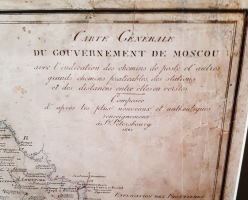 CARTE GÉNÉRALE
DU GOUVERNEMENT DE MOSCOU
avec l'indication des chemins de poste et autres
grands chemins praticables, des stations
et des distances entre elles en verstes
Composée
d'après les plus nouveaux et authentiques
renseignemens
à St. Pétersbourg